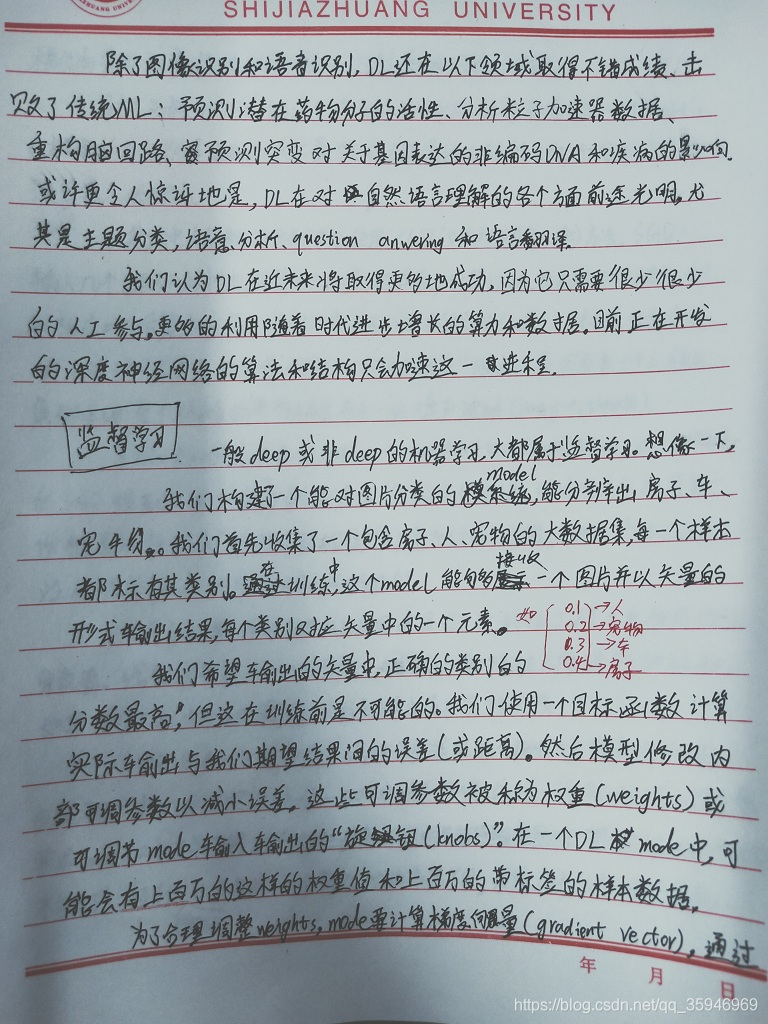 SHIJIAZHUANG UNIVERSITY
除了图像识别和语音识别，DL还在以下领域取得不错成绩、击
败了传统ML：预测潜在药物分子的活性、分析粒子加速器数据、
重构脑回路、预测突变对关于基因表达的非编码DNA和疾病的影响.
或许更令人惊讶地是，DL在对自然语言理解的各个方面前途光明。尤
其是主题分类，语意分析、question anwering 和语言翻译.
我们认为DL在近未来将取得更多地成功，因为它只需要很少很少
的人工参与。更多的利用随着时代进步增长的算力和数据。目前正在开发
的深度神经网络的算法和结构只会加速这一进程.
监督学习
一般deep或非deep的机器学习，大都属于监督学习。想像一下，
我们构建了一个能对图片分类的model，能分辨出房子、车、
宠牛勿。我们首先收集了一个包含房子、人、宠物的大数据集，每一个样本
都标有其类别。在训练中，这个model能够接收一个图片并以矢量的
形式输出结果，每个类别对应矢量中的一个元素。
如 0.1→人
0.2→宠物
0.3→车
0.4→房子
我们希望输出的矢量中，正确的类别的
分数最高，但这在训练前是不可能的。我们使用一个目标函数计算
实际输出与我们期望结果间的误差(或距离)。然后模型修改内
部可调参数以减小误差。这些可调参数被称为权重(weights)或
可调节mode输入输出的“旋钮(knobs)”。在一个DL mode中，可
能会有上百万的这样的权重值和上百万的带标签的样本数据。
为了合理调整weights，mode要计算梯度向量(gradient vector)，通过
年 月 日
https://blog.csdn.net/qq_35946969